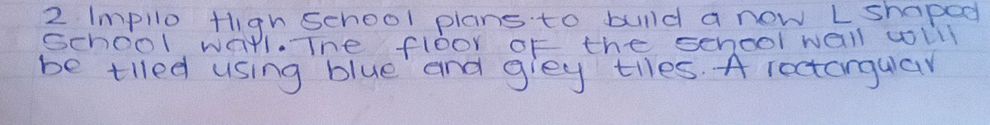 2 Impilo High School plans to build a new L shaped
School wall. The floor of the school wall will
be tiled using blue and grey tiles. A rectangular